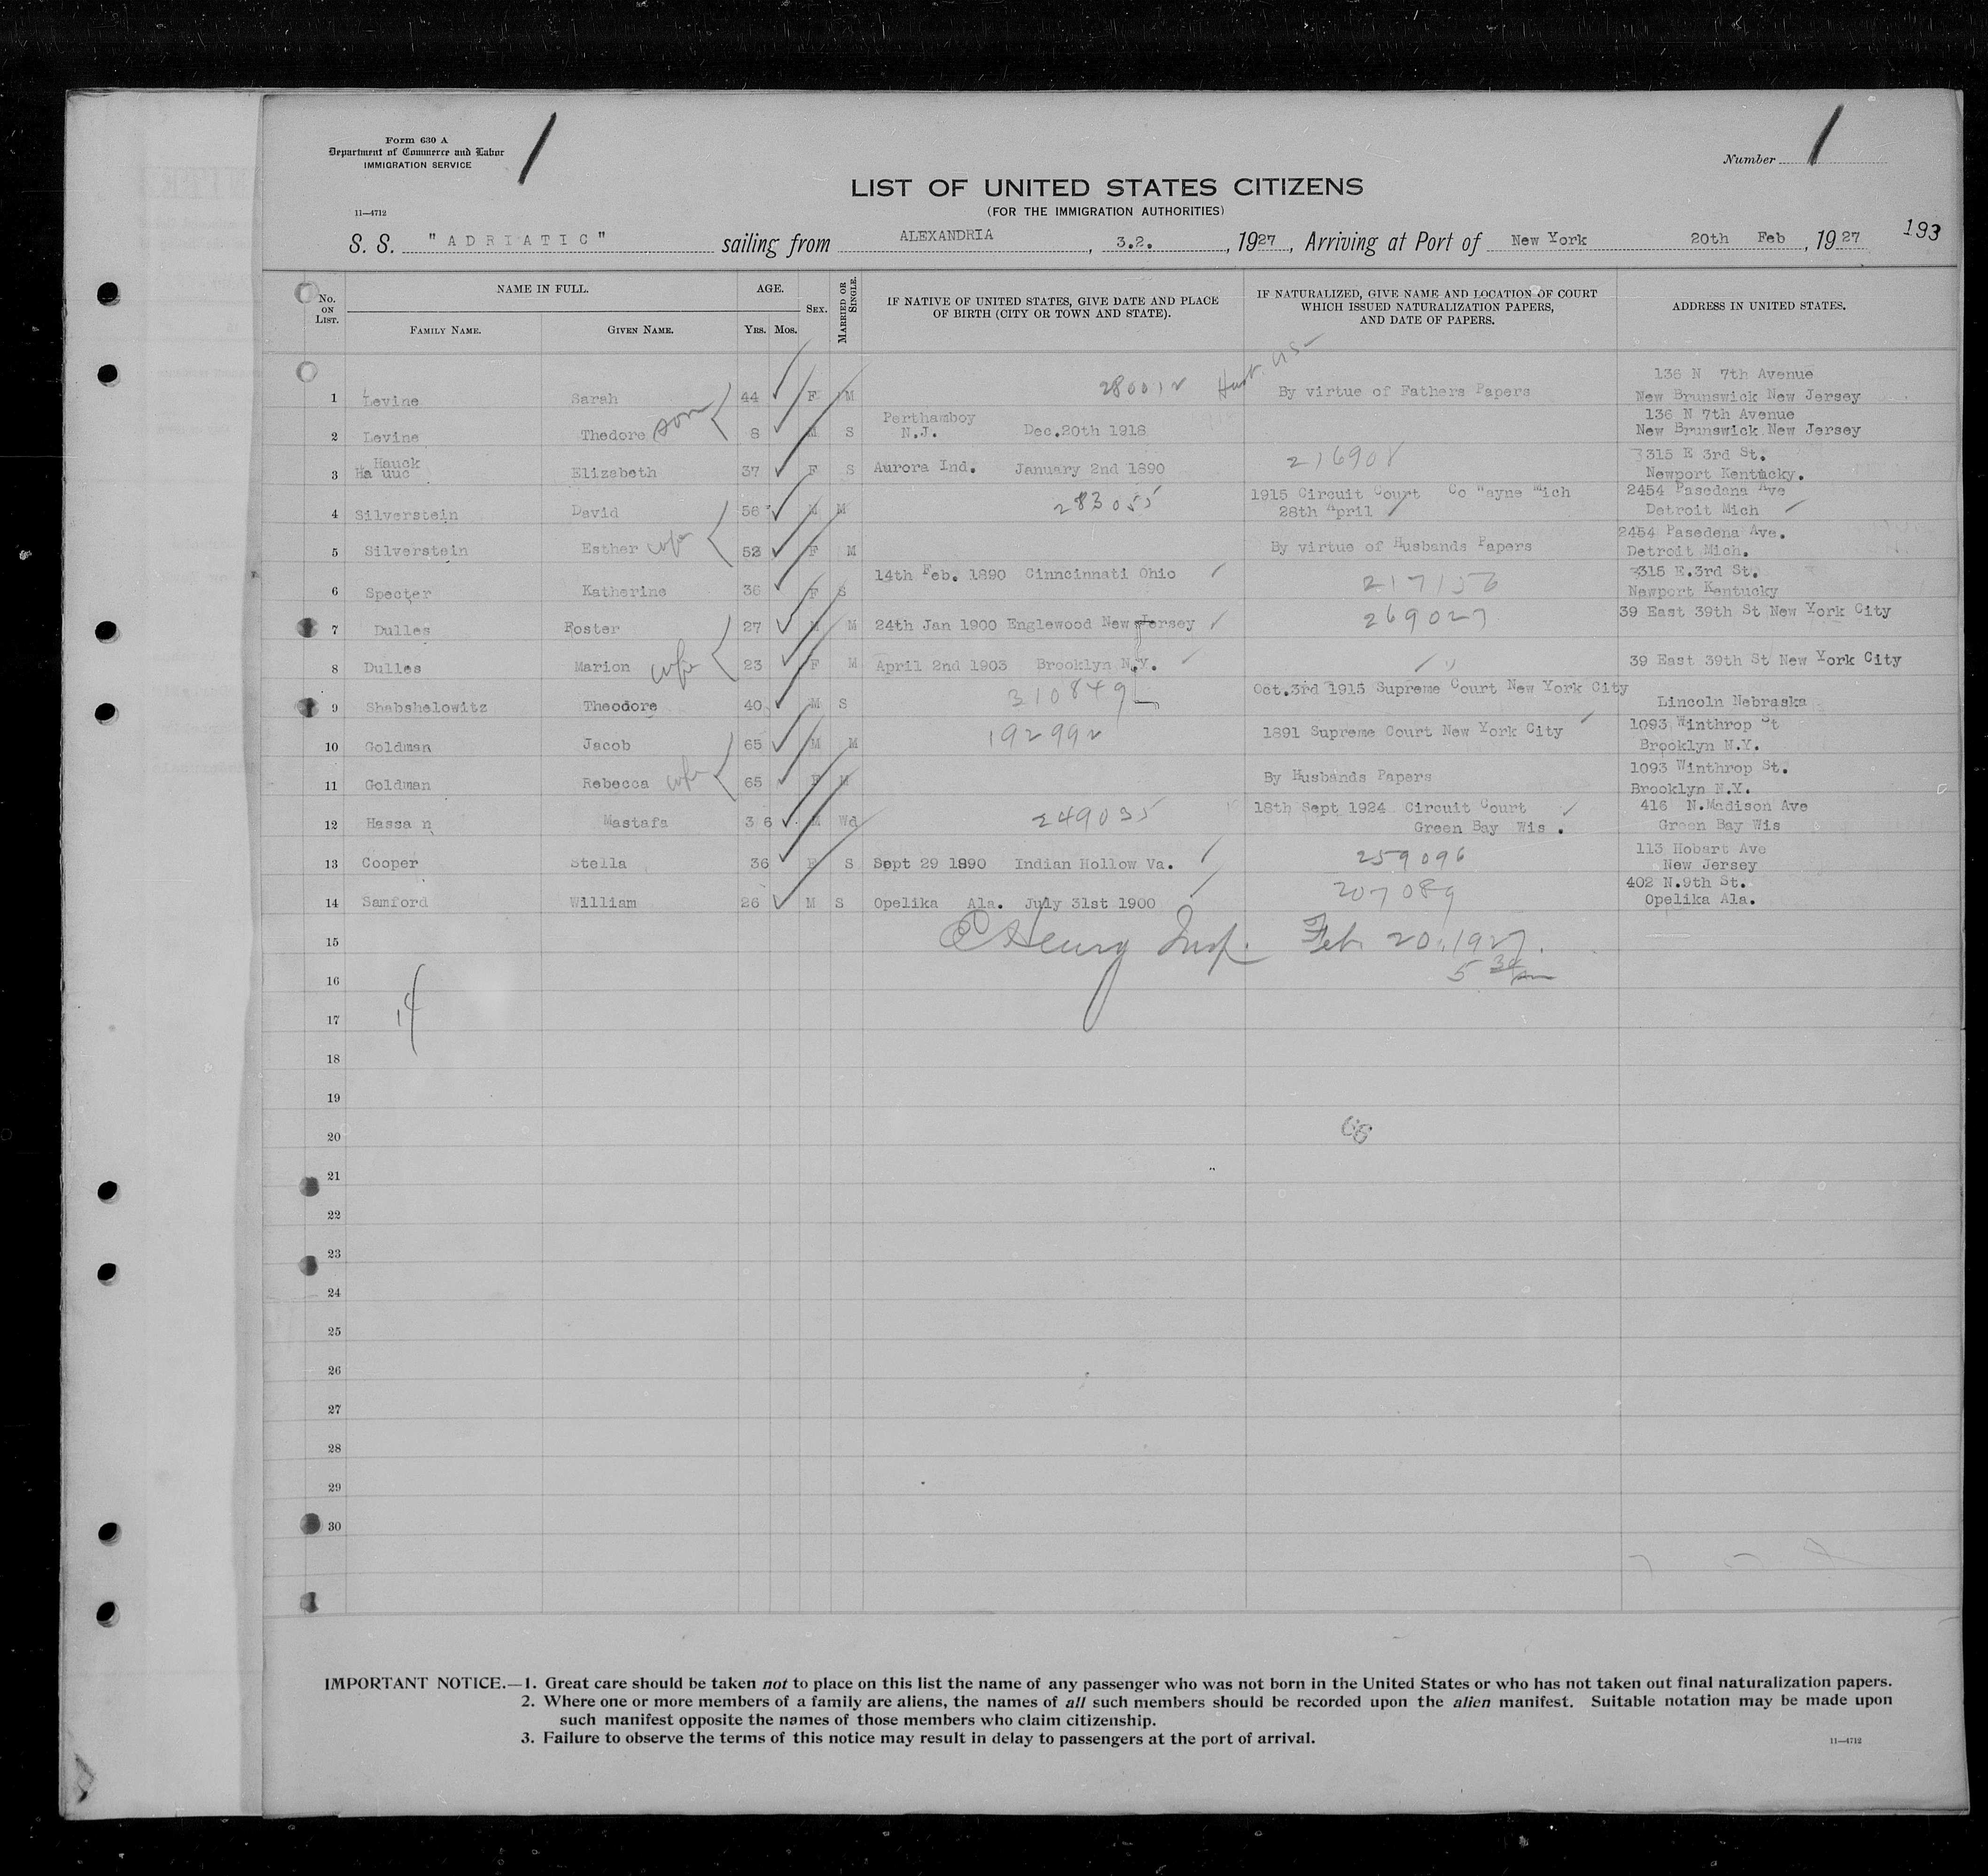 Form 630 A
Department of Commerce and Labor
IMMIGRATION SERVICE
1
Number 1
LIST OF UNITED STATES CITIZENS
(FOR THE IMMIGRATION AUTHORITIES)
11—4712
S. S. "ADRIATIC" sailing from ALEXANDRIA, 3.2., 1927, Arriving at Port of New York 20th Feb, 1927 193
No. ON LIST. NAME IN FULL. AGE. SEX. MARRIED OR SINGLE. IF NATIVE OF UNITED STATES, GIVE DATE AND PLACE OF BIRTH (CITY OR TOWN AND STATE). IF NATURALIZED, GIVE NAME AND LOCATION OF COURT WHICH ISSUED NATURALIZATION PAPERS, AND DATE OF PAPERS. ADDRESS IN UNITED STATES.
FAMILY NAME. GIVEN NAME. YRS. MOS.
1 Levine Sarah 44 F M 280012 Husb. US By virtue of Fathers Papers 136 N 7th Avenue New Brunswick New Jersey
2 Levine Thedore son 8 M S Perthamboy N.J. Dec.20th 1918 136 N 7th Avenue New Brunswick New Jersey
3 Hauck Ha uuc Elizabeth 37 F S Aurora Ind. January 2nd 1890 216908 315 E 3rd St. Newport Kentucky.
4 Silverstein David 56 M M 283055 1915 Circuit Court Co Wayne Mich 28th April 2454 Pasedana Ave Detroit Mich
5 Silverstein Esther wife 53 F M By virtue of Husbands Papers 2454 Pasedena Ave. Detroit Mich.
6 Specter Katherine 36 F S 14th Feb. 1890 Cinncinnati Ohio 217156 315 E.3rd St. Newport Kentucky
7 Dulles Foster 27 M M 24th Jan 1900 Englewood New Jersey 269027 39 East 39th St New York City
8 Dulles Marion wife 23 F M April 2nd 1903 Brooklyn N.Y. " 39 East 39th St New York City
9 Shabshelowitz Theodore 40 M S 310849 Oct.3rd 1915 Supreme Court New York City Lincoln Nebraska
10 Goldman Jacob 65 M M 192992 1891 Supreme Court New York City 1093 Winthrop St Brooklyn N.Y.
11 Goldman Rebecca wife 65 F M By Husbands Papers 1093 Winthrop St. Brooklyn N.Y.
12 Hassa n Mastafa 3 6 M Wd 249035 18th Sept 1924 Circuit Court Green Bay Wis . 416 N.Madison Ave Green Bay Wis
13 Cooper Stella 36 F S Sept 29 1890 Indian Hollow Va. 259096 113 Hobart Ave New Jersey
14 Samford William 26 M S Opelika Ala. July 31st 1900 207089 402 N.9th St. Opelika Ala.
15 Henry Insp. Feb. 20, 1927.
16 5 30 pm
17 14
18
19
20
21
22
23
24
25
26
27
28
29
30
IMPORTANT NOTICE.—1. Great care should be taken not to place on this list the name of any passenger who was not born in the United States or who has not taken out final naturalization papers.
2. Where one or more members of a family are aliens, the names of all such members should be recorded upon the alien manifest. Suitable notation may be made upon
such manifest opposite the names of those members who claim citizenship.
3. Failure to observe the terms of this notice may result in delay to passengers at the port of arrival.
11—4712